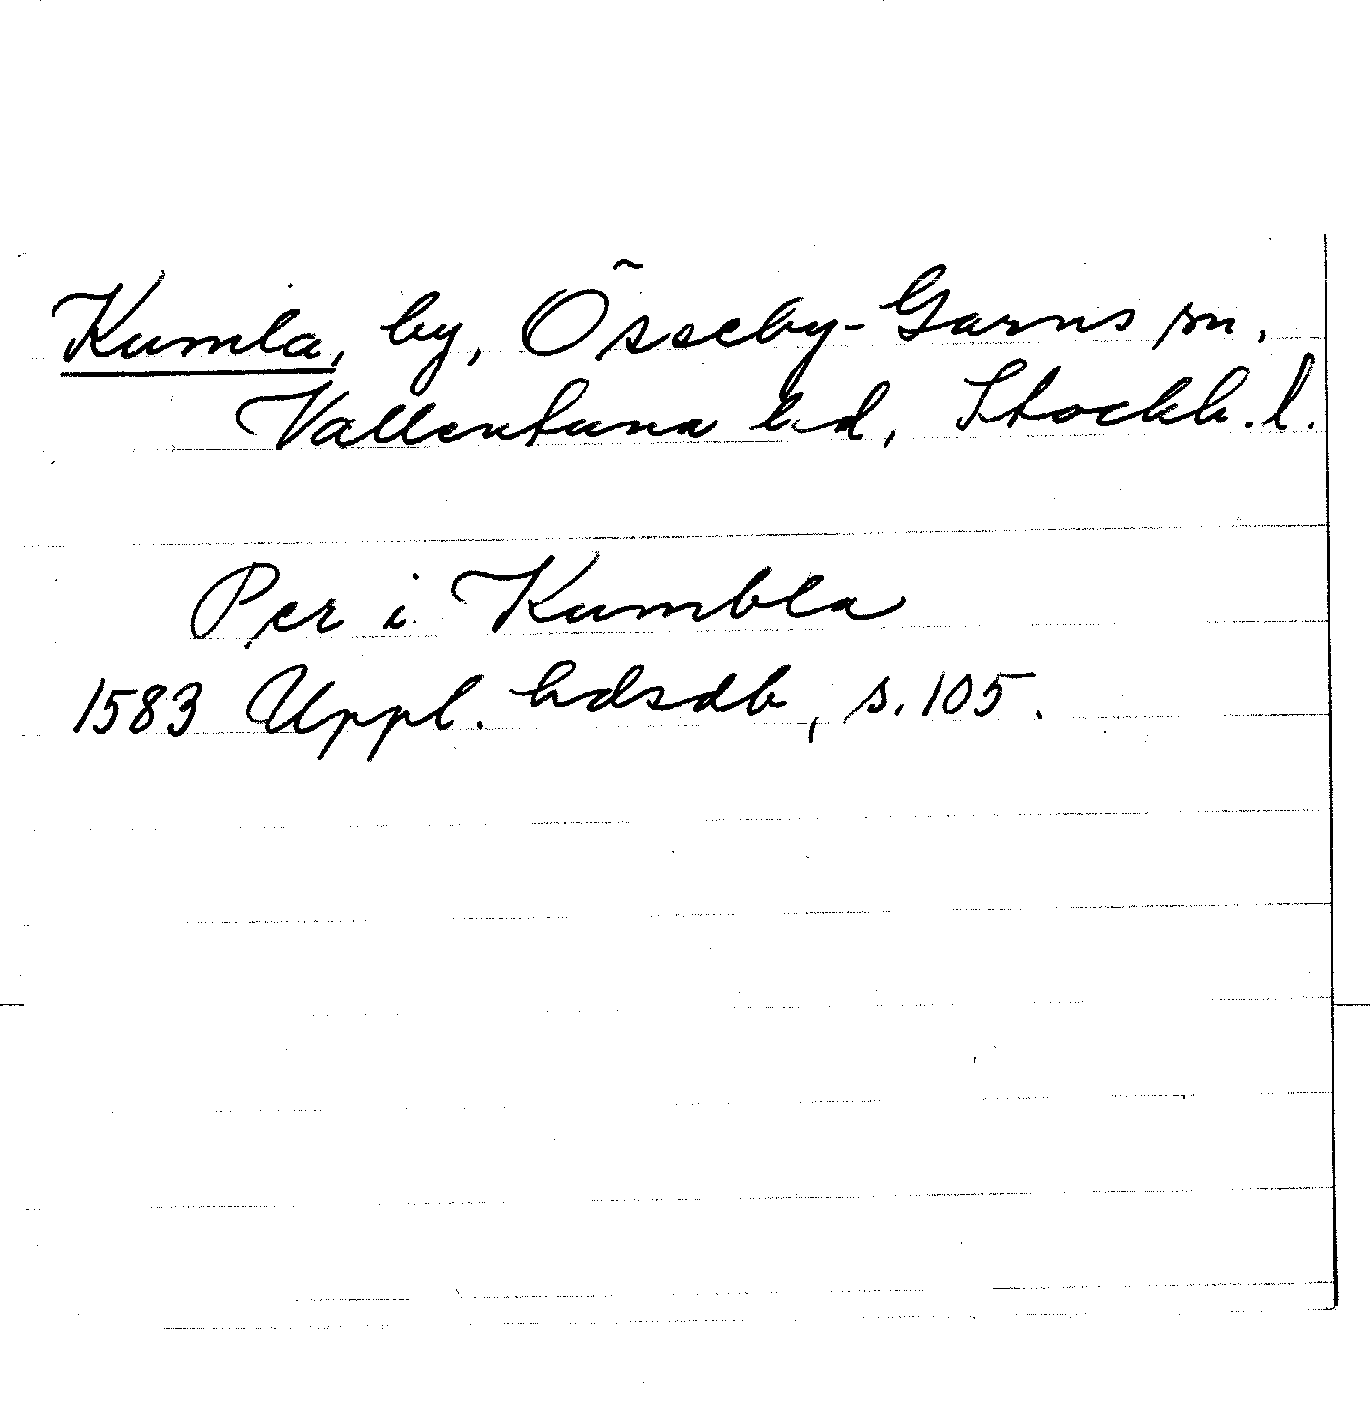 Kumla, by, Össeby-Garns sn.
Vallentuna hd, Stockh. l.
Per i Kumbla
1583 Uppl. hdsdb, s. 105.